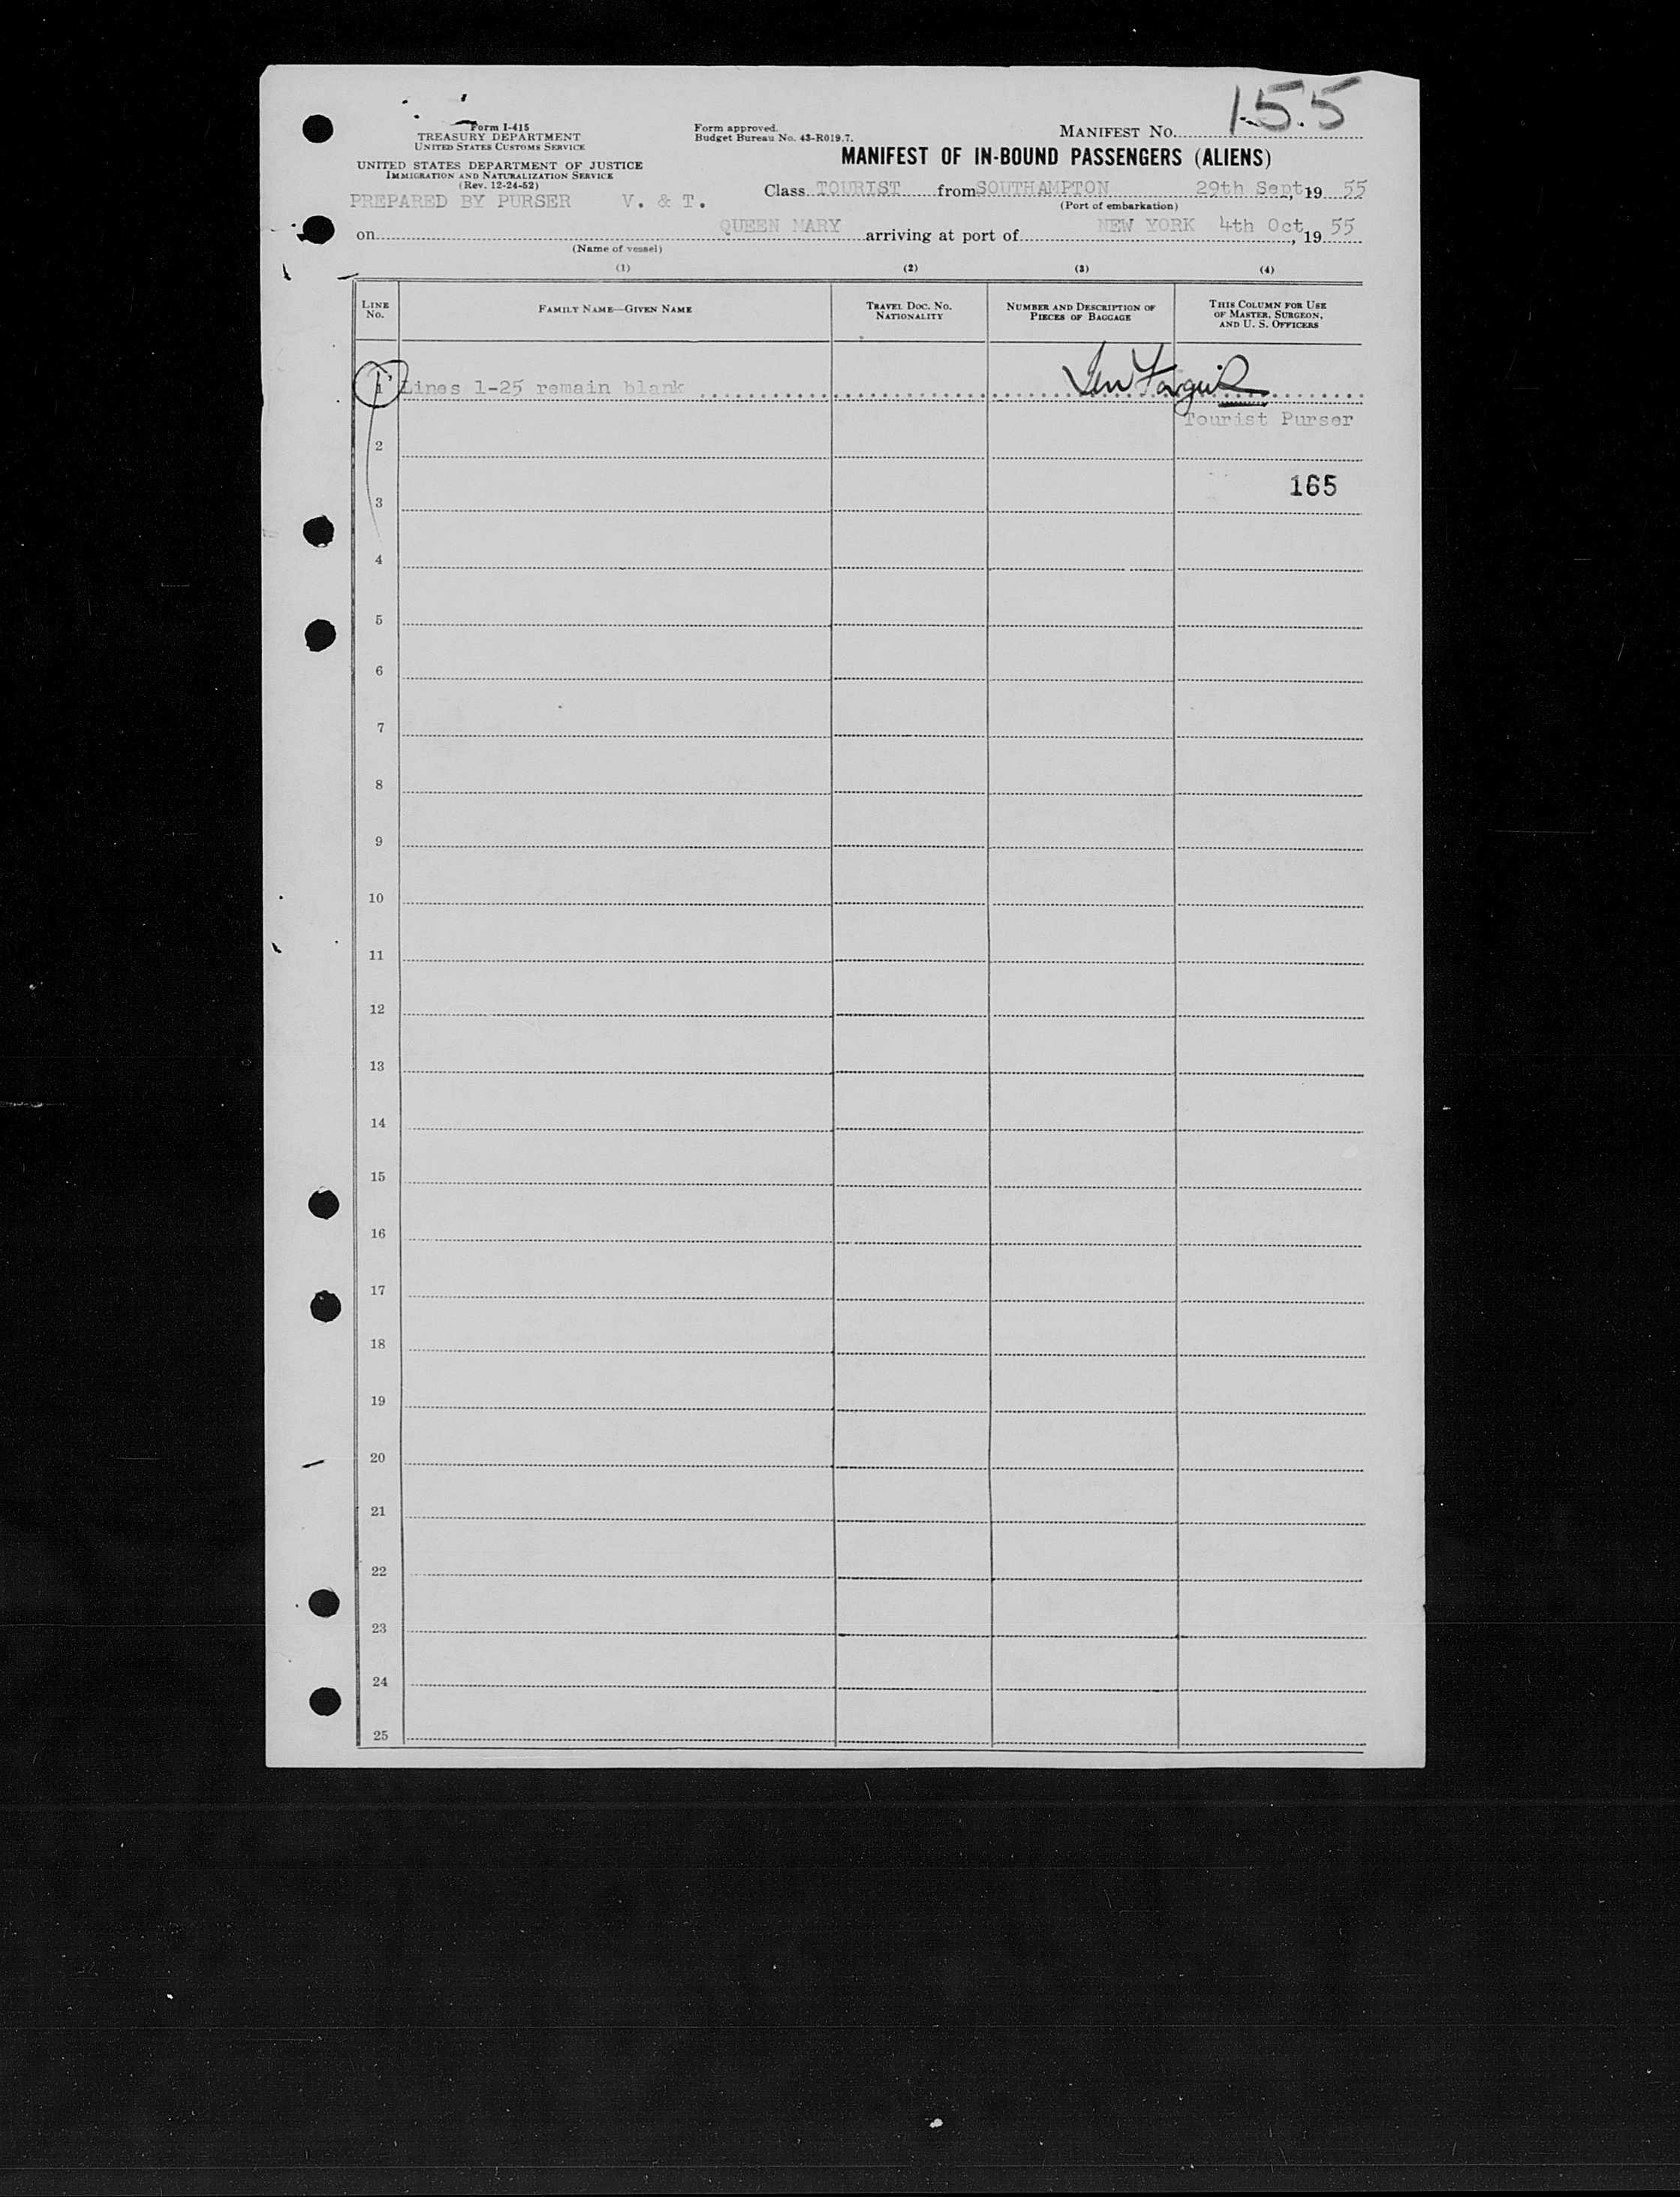 Form I-415
TREASURY DEPARTMENT
UNITED STATES CUSTOMS SERVICE
UNITED STATES DEPARTMENT OF JUSTICE
IMMIGRATION AND NATURALIZATION SERVICE
(Rev. 12-24-52)
PREPARED BY PURSER V. & T.
Form approved.
Budget Bureau No. 43-R019.7.
MANIFEST No. 155
MANIFEST OF IN-BOUND PASSENGERS (ALIENS)
Class TOURIST from SOUTHAMPTON 29th Sept, 19 55
(Port of embarkation)
on QUEEN MARY arriving at port of NEW YORK 4th Oct, 19 55
(Name of vessel)
(1) (2) (3) (4)
LINE No. FAMILY NAME—GIVEN NAME TRAVEL DOC. NO. NATIONALITY NUMBER AND DESCRIPTION OF PIECES OF BAGGAGE THIS COLUMN FOR USE OF MASTER, SURGEON, AND U. S. OFFICERS
1 Lines 1-25 remain blank
Tourist Purser
2
165
3
4
5
6
7
8
9
10
11
12
13
14
15
16
17
18
19
20
21
22
23
24
25